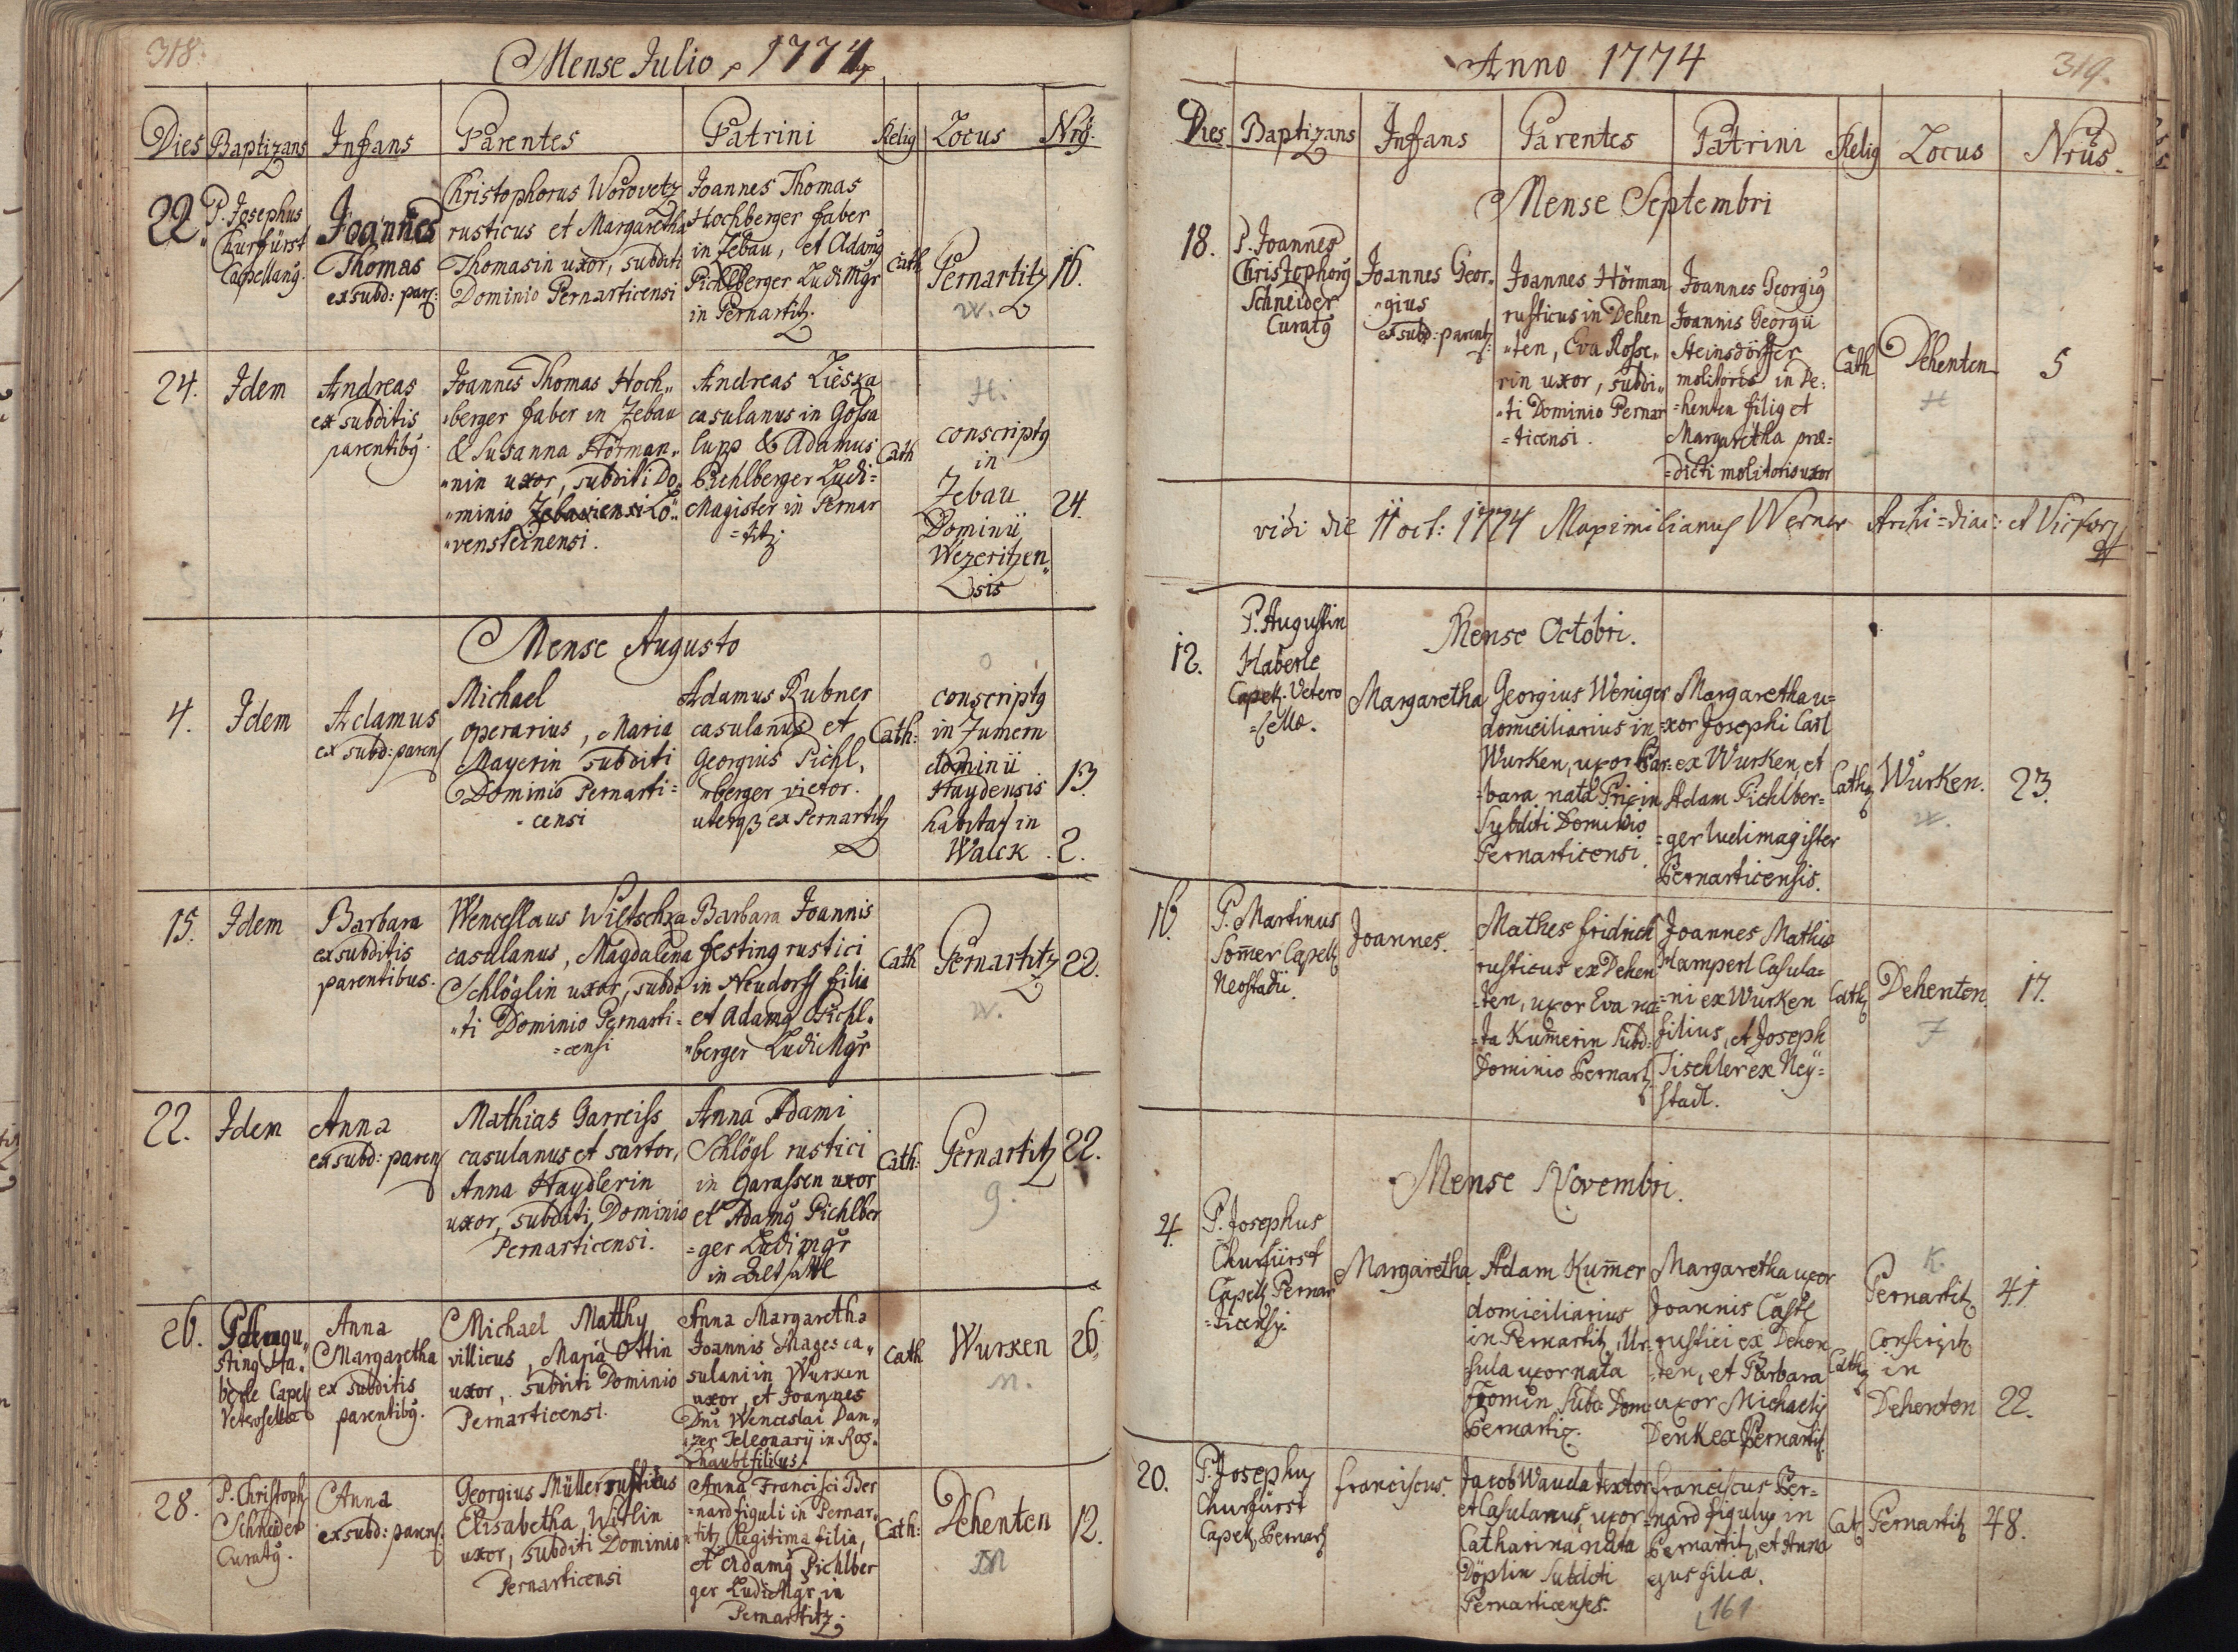 318.
Mense Julio, 1774
Dies Baptizans Infans Parentes Patrini Relig Locus Nrg.
22. P. Josephus
Churfürst
Capellang.
Joannes
Thomas
ex subd: par:
Christophorus Worovetz
rusticus et Margaretha
Thomasin uxor, subditi
Dominio Pernarticensi
Joannes Thomas
Hochberger faber
in Zebau, et Adamg
Pichlberger LudiMgr
in Pernartitz.
Cath
Pernartitz
w.
16.
24. Idem
Andreas
ex subditis
parentibg.
Joannes Thomas Hoch„
„berger faber in Zebau
& Susanna Hörman„
„nin uxor, subditi Do„
„minio Zebaviensi Lö„
„vensteinensi.
Andreas Lieska
casulanus in Gossa
lupp & Adamus
Pichlberger Ludi=
Magister in Pernar
=titz.
Cath
H.
conscriptg
in
Zebau
Dominii
Wezeritzen„
sis
24.
Mense Augusto
4. Idem
Adamus
ex subd: paren
Michael
operarius, Maria
Mayerin subditi
Dominio Pernarti=
-censi
Adamus Rubner
casulanus et
Georgius Pichl,
„berger vietor.
uterq3 ex Pernartitz
Cath:
o
conscriptg
in Zumern
dominii
Haydensis
habitat in
Walck
13.
2.
15. Idem
Barbara
ex subditis
parentibus.
Wenceslaus Wiltschka
casulanus, Magdalena
Schlöglin uxor, subdi
„ti Dominio Pernarti=
=censi
Barbara Joannis
festing rustici
in Neudorff filia
et Adamg Pichl„
„berger LudiMgr
Cath
Pernartitz
w.
22.
22. Idem
Anna
ex subd: paren
Mathias Garreiss
casulanus et sartor,
Anna Haydlerin
uxor, subditi, Dominio
Pernarticensi.
Anna Adami
Schlögl rustici
in Garassen uxor
et Adamg Pichlber
=ger Ludimgr
in
Cath:
Pernartitz
g.
22.
26.
sting Ha„
berle Capell
Veterosellæ
Anna
Margaretha
ex subditis
parentibg.
Michael Matthy
villicus, Maria Ottin
uxor, subditi Dominio
Pernarticensi.
Anna Margaretha
Joannis Mages ca„
sulani in Wurken
uxor, et Joannes
Dni Wenceslai Dan„
„zer Teleonarij in Ros„
haubt filius.
Cath
Wurken
M.
26.
28. P. Christoph
Schneider
Curatg.
Anna
ex subd: paren:
Georgius Müller rusticus
Elisabetha Witlin
uxor, subditi Dominio
Pernarticensi
Anna Francisci Ber
=nard figuli in Pernar„
„titz legitima filia,
et Adamg Pichlber
ger LudiMgr in
Pernartitz.
Cath:
Dehenten
M
12.
Anno 1774
319.
Dies Baptizans Infans Parentes Patrini Relig Locus Nrus.
Mense Septembri
18. P. Joannes
Christophorg
Schneider
Curatg
Joannes Geor„
„gius
ex subd: parent:
Joannes Hörman
rusticus in Dehen
„ten, Eva Rosse„
rin uxor, subdi„
„ti Dominio Pernar
=ticensi.
Joannes Georgig
Joannis Georgii
Steinsdörffer
molitoris in De:
=henten filig et
Margaretha præ=
=dicti molitoris uxor
Cath
Dehenten
H
5
vidi die 11 oct: 1774 Maximilianus Werner Archi=diac: et Vic for
Mense Octobri.
12. P. Augustin
Haberle
Capell. Vetero
=sellæ.
Margaretha
Georgius Weniger
domiciliarius in
Wurken, uxor Bar=
=bara nata Frixin
Subditi Dominio
Pernarticensi
Margaretha u=
=xor Josephi Carl
ex Wurken, et
Adam Pichlber=
=ger ludimagister
Pernarticensis.
Cath
Wurken.
w.
23.
16. P. Martinus
Som̄er Capell
Neostadii.
Joannes.
Mathes fridrich
rusticus ex Dehen
=ten, uxor Eva na=
=ta Kum̄erin Subd=
Dominio Pernart
Joannes Mathiæ
Hamperl Casula=
=ni ex Wurken
filius, et Joseph
Tischler ex Neÿ=
stadl.
Cath
Dehenten
F
17.
Mense Novembri.
4. P. Josephus
Churfürst
Capell Pernar
=ticensis.
Margaretha
Adam Kum̄er
domiciliarius
in Pernartitz, Ur=
=sula uxor nata
Subd. Dom:
Pernartic.
Margaretha uxor
Joannis Castl
rustici ex Dehen
=ten, et Barbara
uxor Michaelis
Denk ex Pernartitz
Cath
K.
Pernartitz
Conscript
in
Dehenten
41.
22.
20. P. Josephus
Churfürst
Capell, Pernart
franciscus.
Jacob Wauda textor
et Casulanus, uxor
Catharina nata
Döplin Subditi
Pernarticenses.
franciscus Ber=
=nard figulus in
Pernartitz, et Anna
ejus filia.
Cat
Pernartitz
48.
161